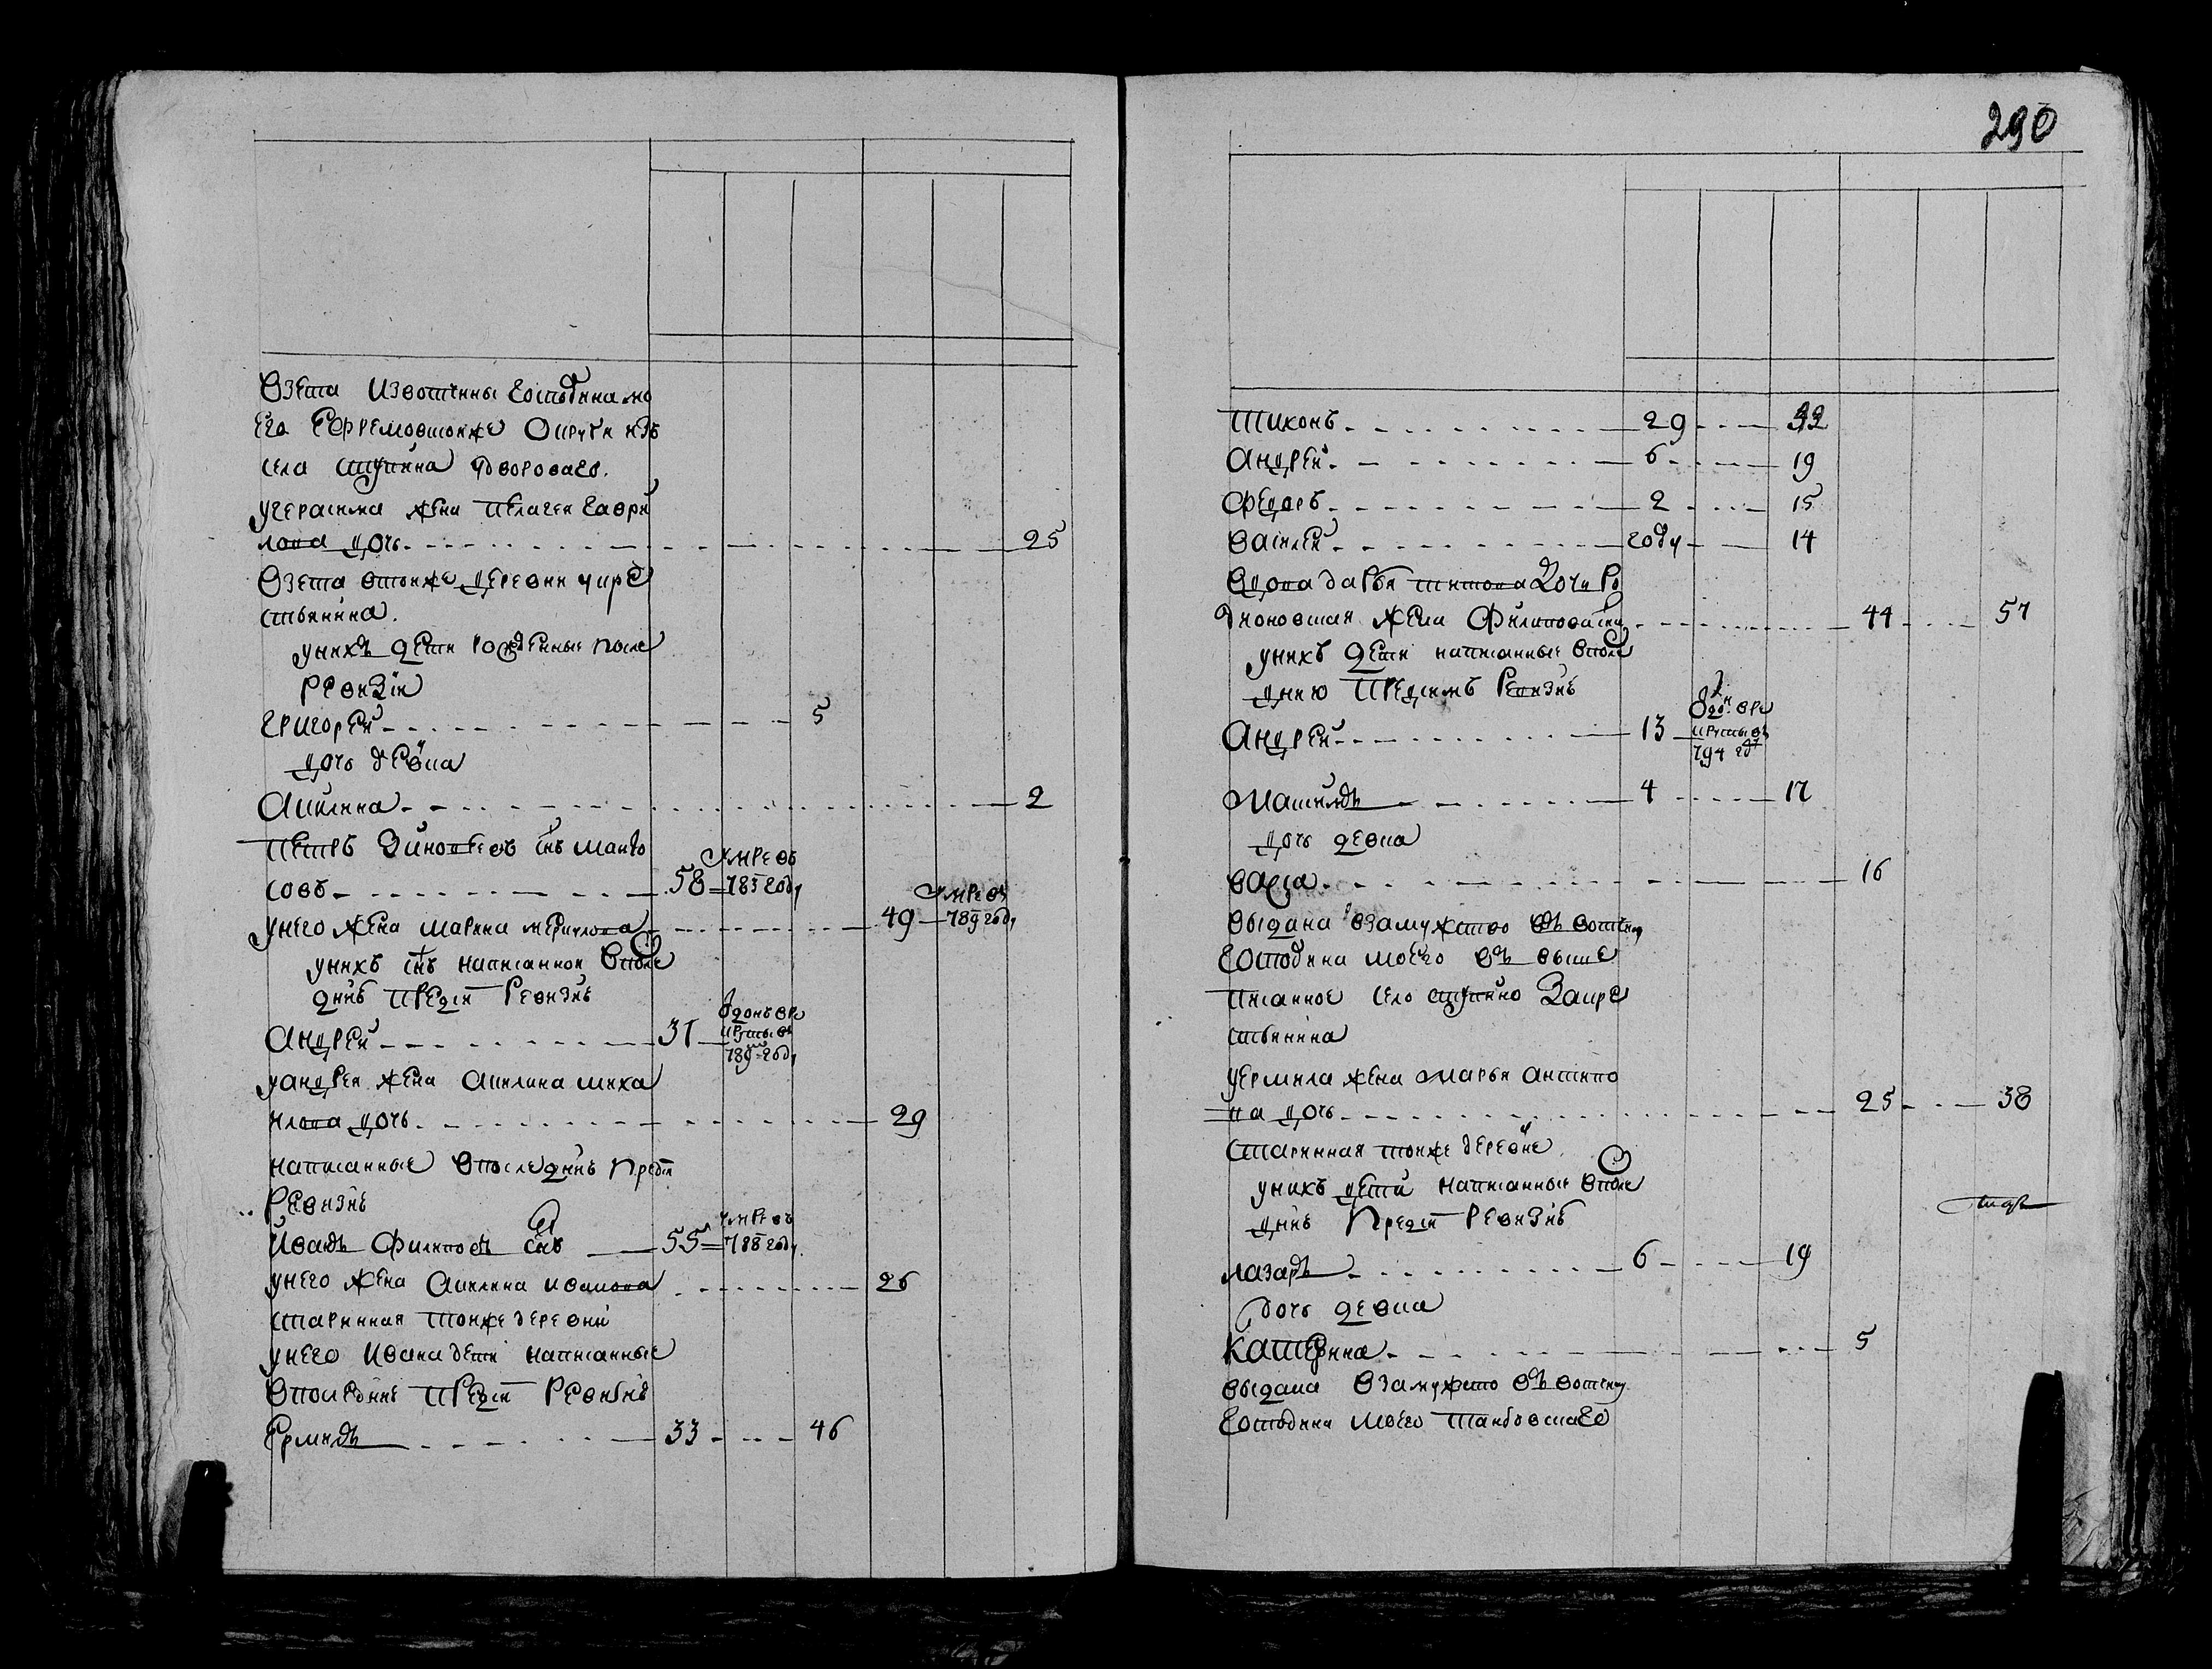 взета извотчины господина мо
его ефремовскоиже округи изъ
села ступина двороваго.
угерасима жена пелагея гаври
лова дочь 25
взета втоиже деревни укре
стьянина.
унихъ дети рожденные после
ревизiи
григореи 5
дочь девка
акилина 2
петръ зиновьевъ снъ манко
совъ 58 умре въ 783 году
унего жена марина меркулова 49 умре въ 789 году
унихъ снъ написаннои впосле
днеи пред сеи ревизiе
андреи 31 отданъ вре круты въ 789 году
уандрея жена акилина миха
илова дочь 29
написанные впоследнеи предсеи
ревизiе
иванъ филиповъ снъ 55 умре въ 788 году
унего жена акилина иванова 26
старинная тоиже деревни
унего ивана дети написанные
впоследнеи пред сеи ревизiе
ермилъ 33 46
290
тихонъ 29 42
андреи 6 19
федоръ 2 15
василеи году 14
вдова дарья титова дочь ро
дионовская жена филиповича 44 57
унихъ дети написанные впосле
днюю предсимъ ревизiю
андреи 13 отдан вре круты въ 794 году
матвеи 4 17
дочь девка
варка 16
выдана взамужство въ вотчину
господина моего въ выше
писанное село ступино закре
стьянина
уермила жена марья антипо
ва дочь 25 38
старинная тоиже деревне
унихъ дети написанные впосле
днеи предсеи ревизiе
лазарь 6 19
дочь девка
катерина 5
выдана взамужство въ вотчину
господина моего танбовскаго